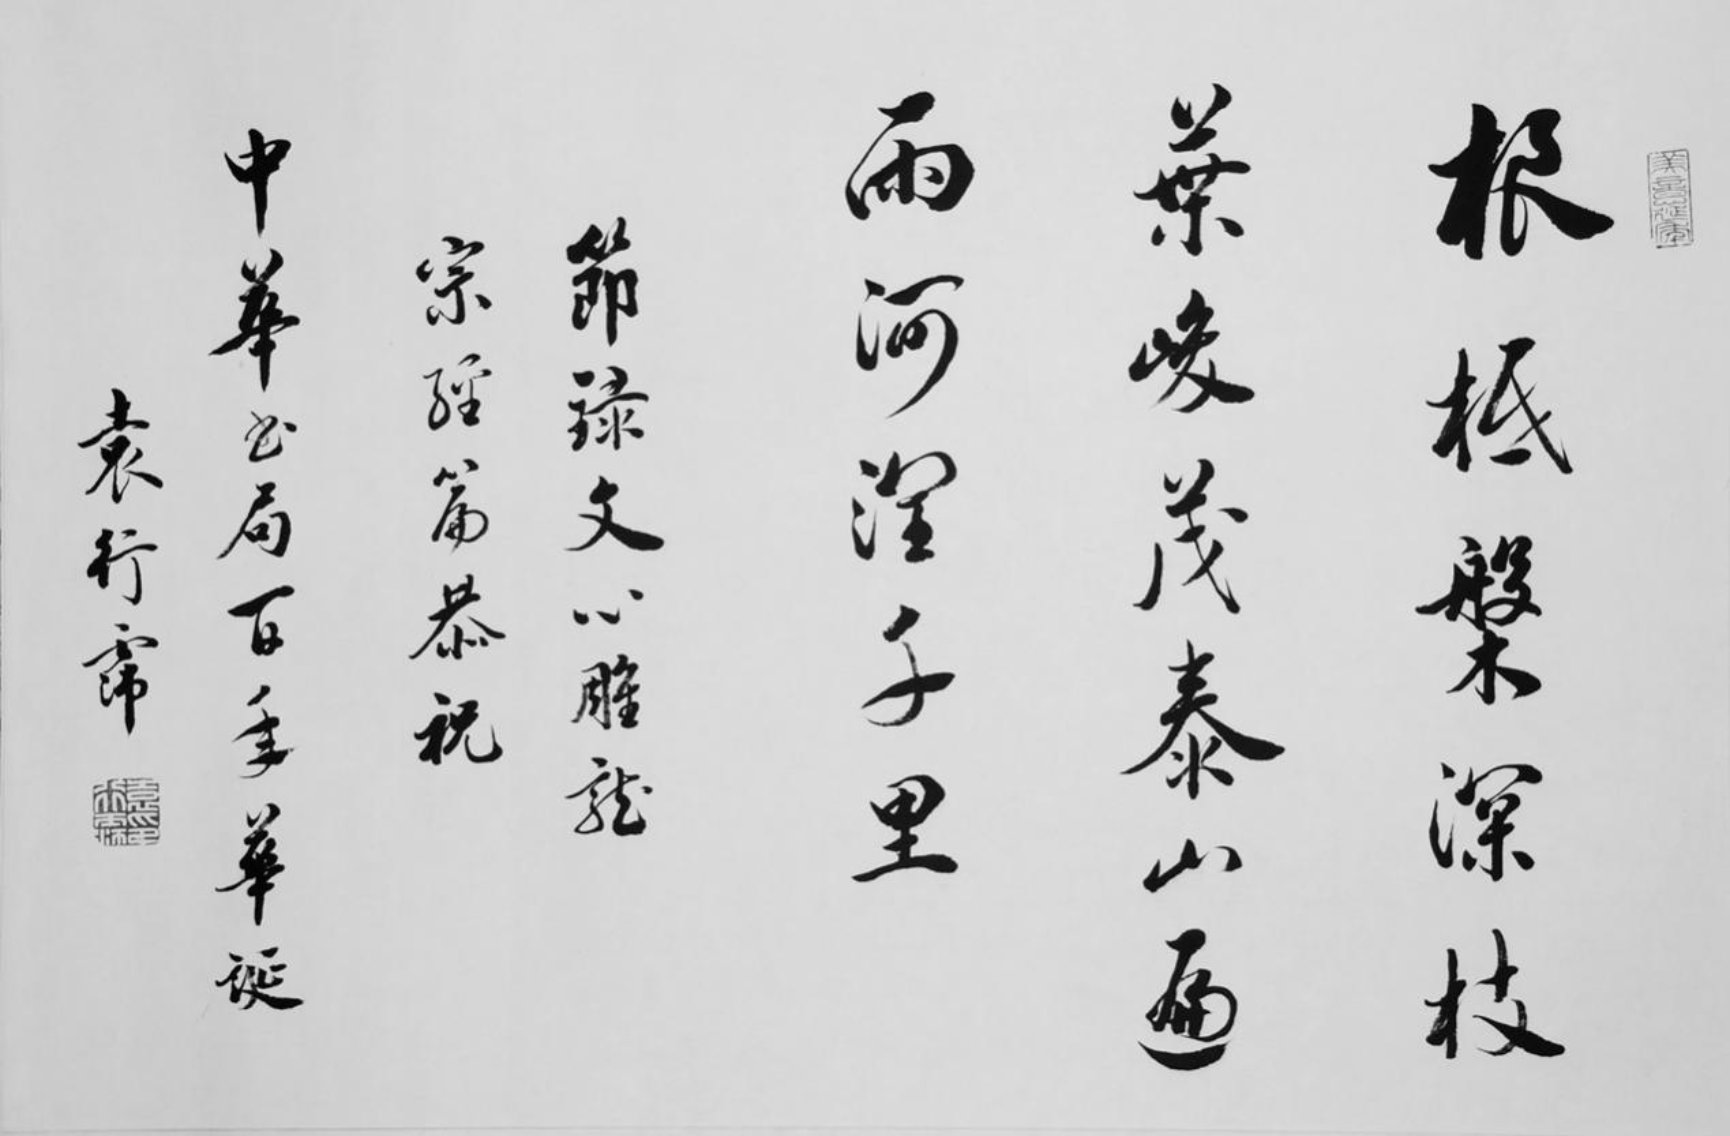 根柢槃深枝
葉峻茂泰山遍
雨河潤千里
節録文心雕龍
宗經篇恭祝
中華書局百年華誕
袁行霈